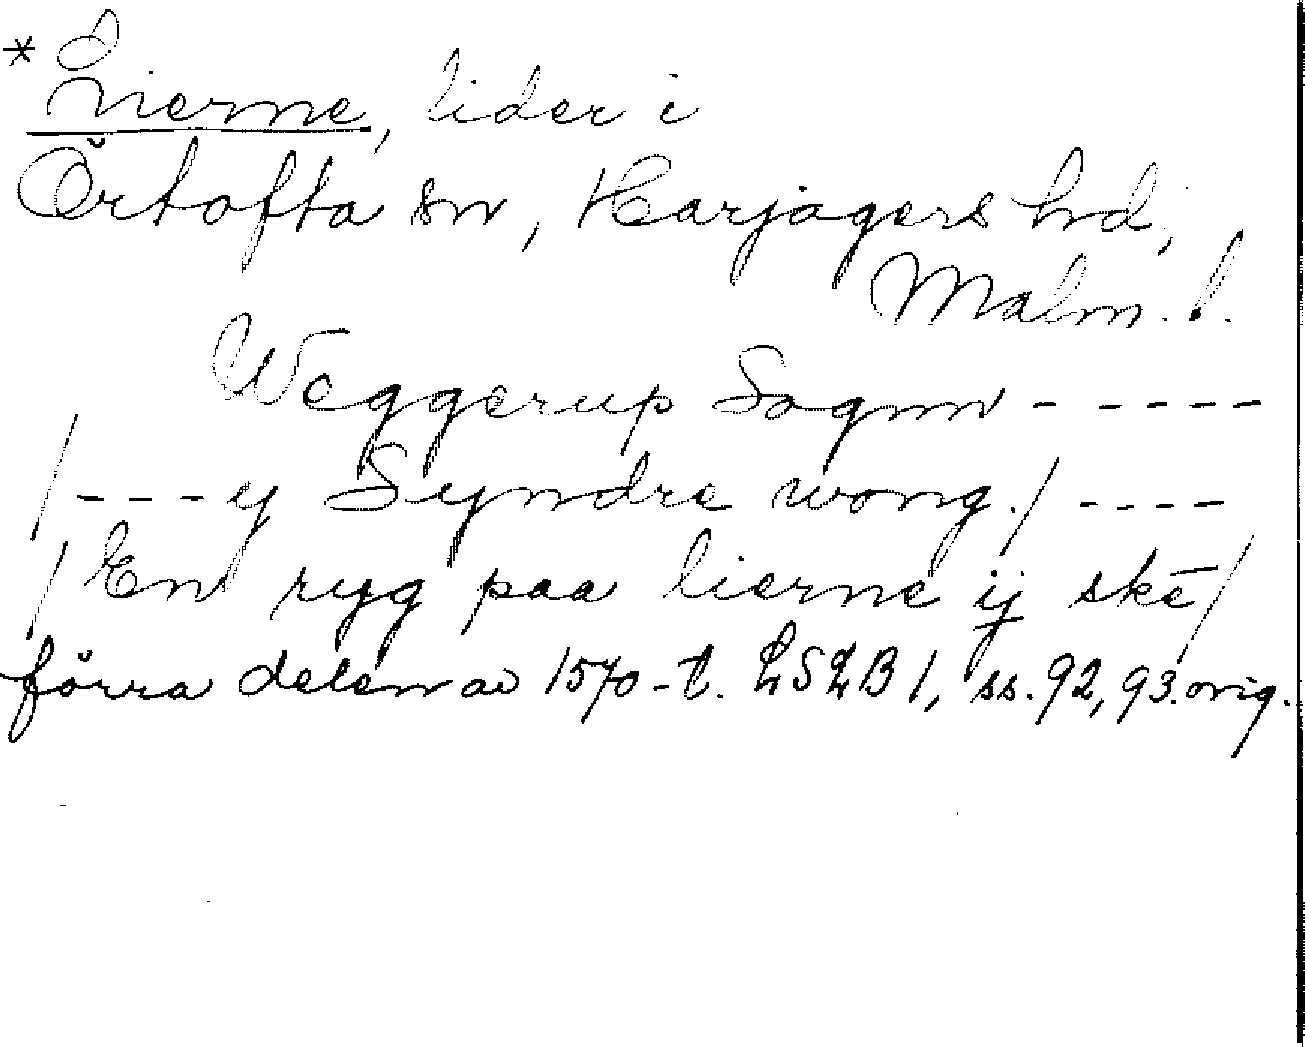 * Lierne, lider i
Örtofta sn, Harjagers hd,
Malm. l.
Weggerup Sognn - - - - -
/ - - - y Syndre wong. / - - - -
/ En ryg paa lierne ij skē /
förra delen av 1570-t. LSLB 1, ss. 92, 93. orig.